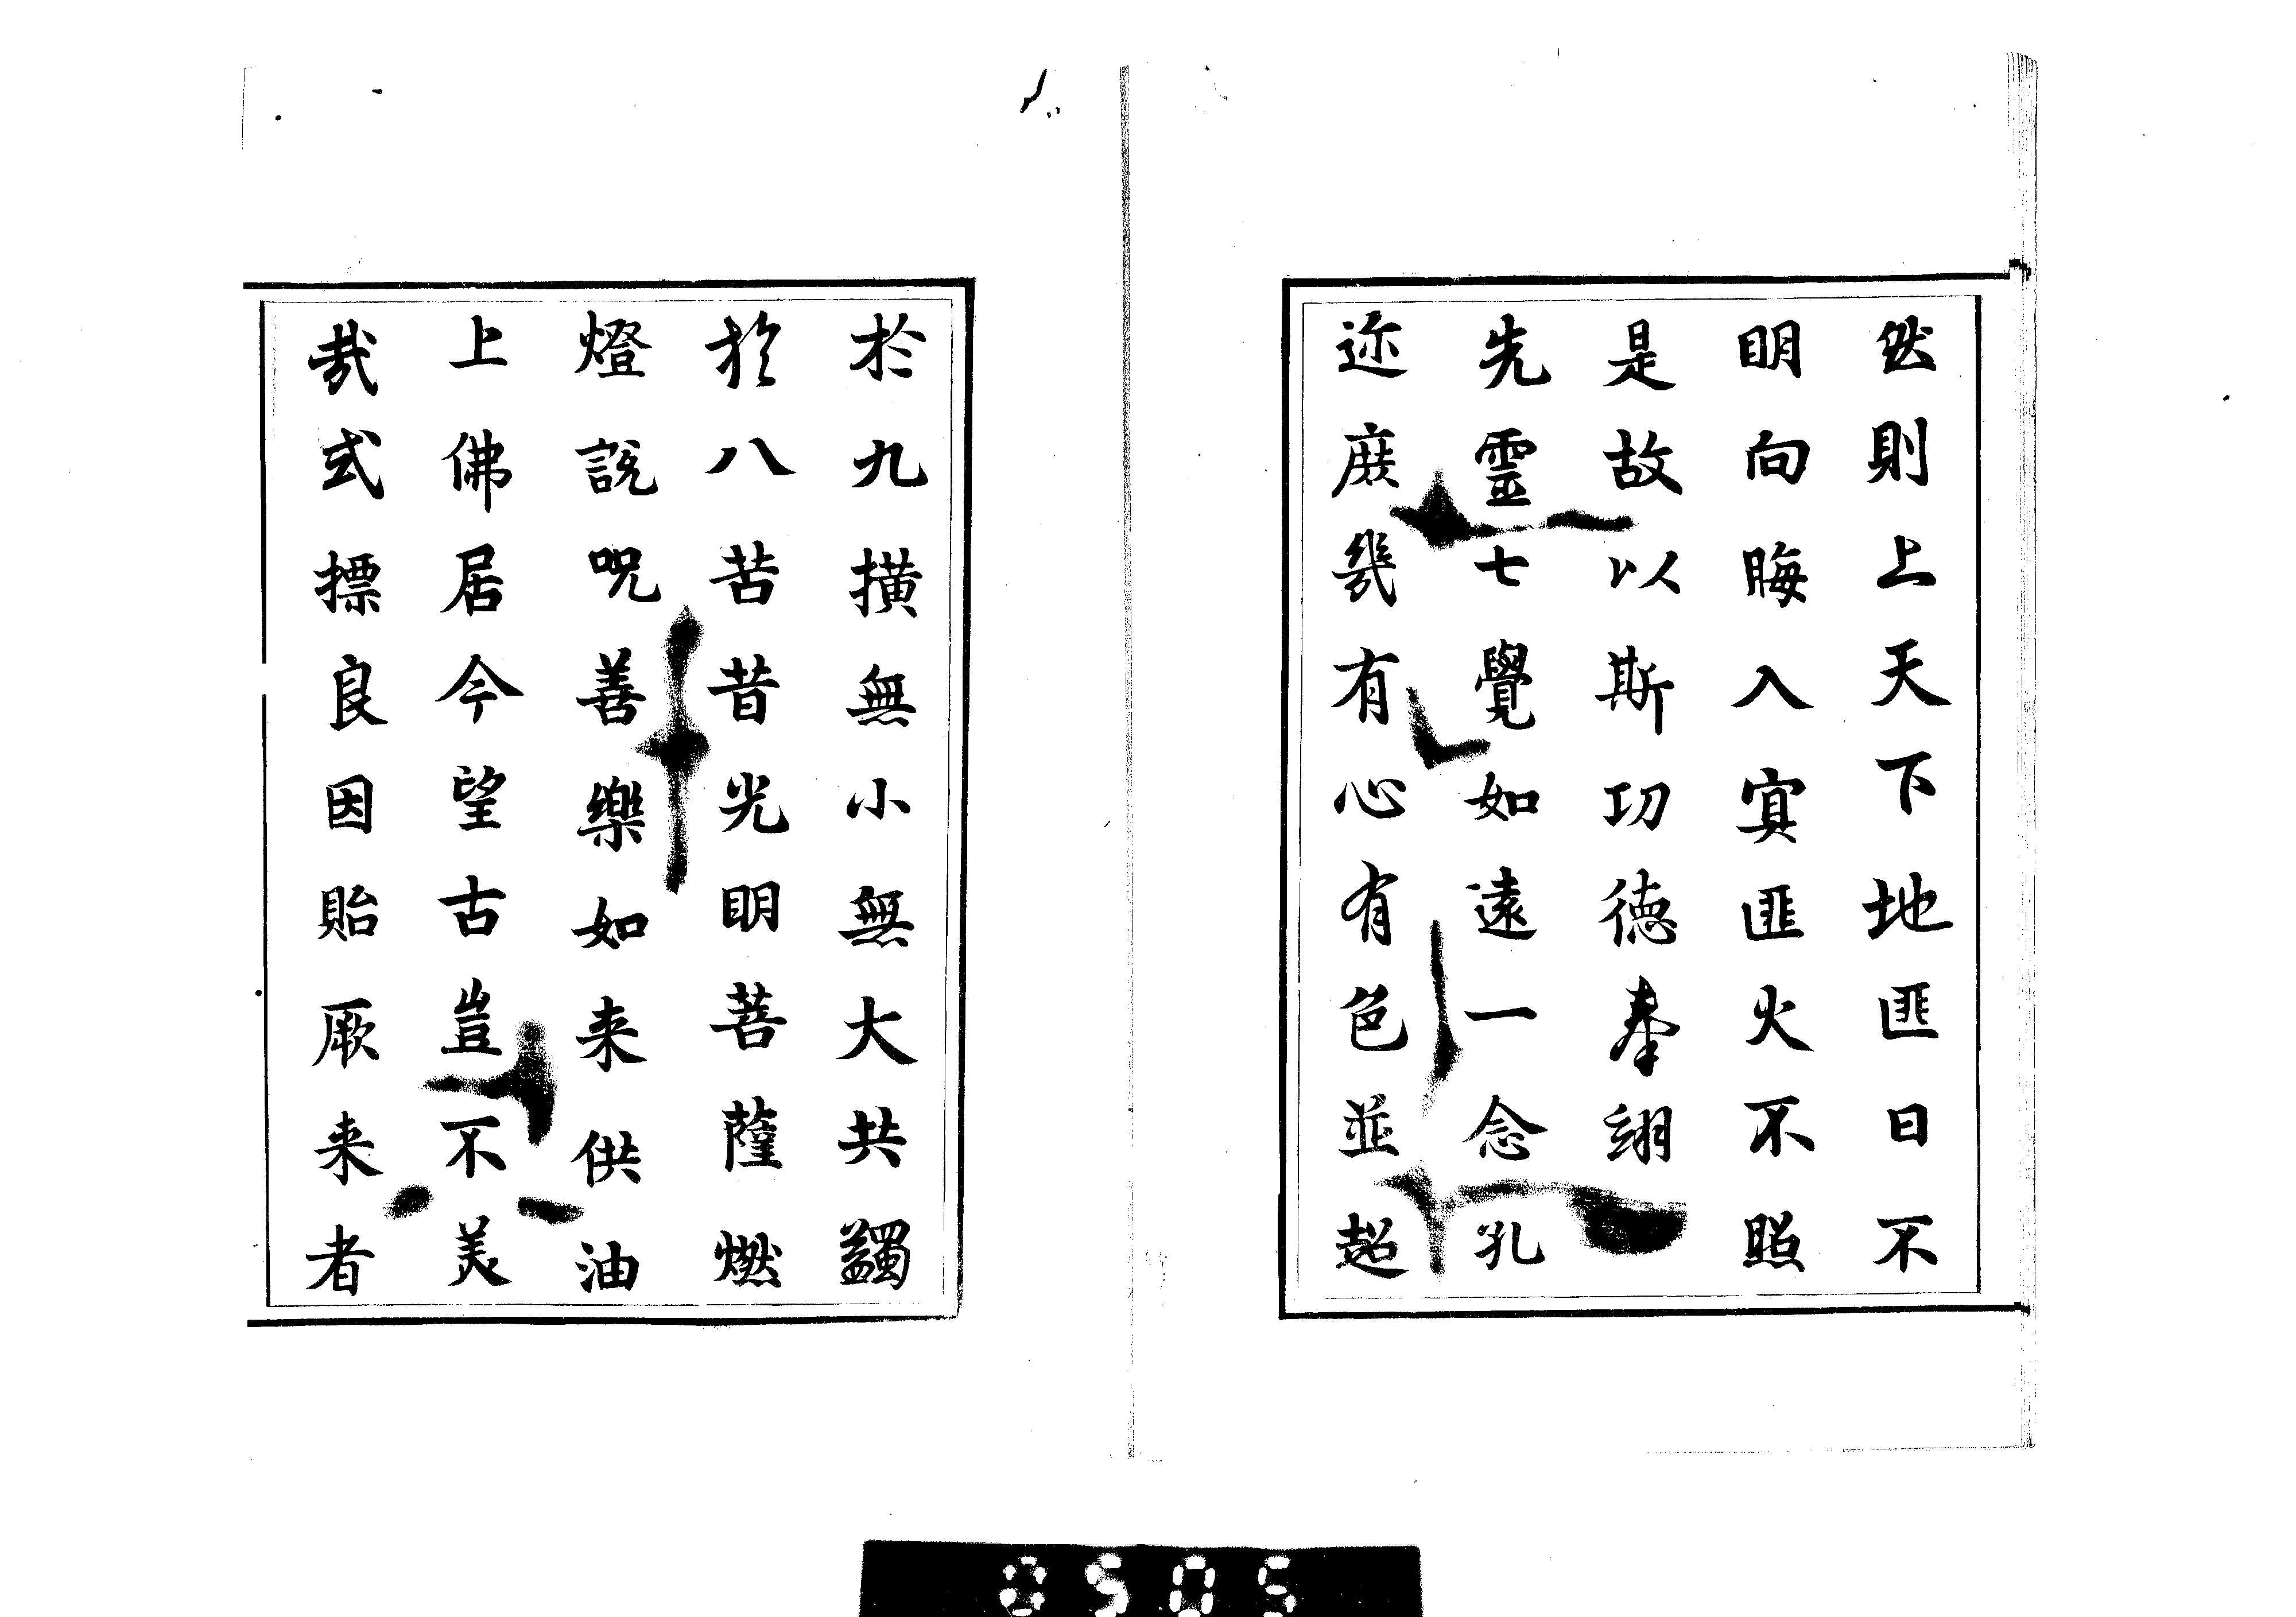 然則上天下地匪日不
明向晦入冥匪火不照
是故以斯功德奉翊
先靈七覺如遠一念孔
迩庶幾有心有色並超
於九横無小無大共蠲
於八苦昔光明菩薩燃
燈説呪善樂如来供油
上佛居今望古豈不美
哉式摽良因貽厥来者
0505